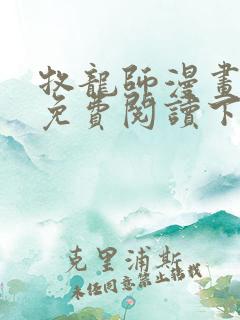 牧龍師漫畫
免費閱讀下
克里浦斯
未经同意禁止转载